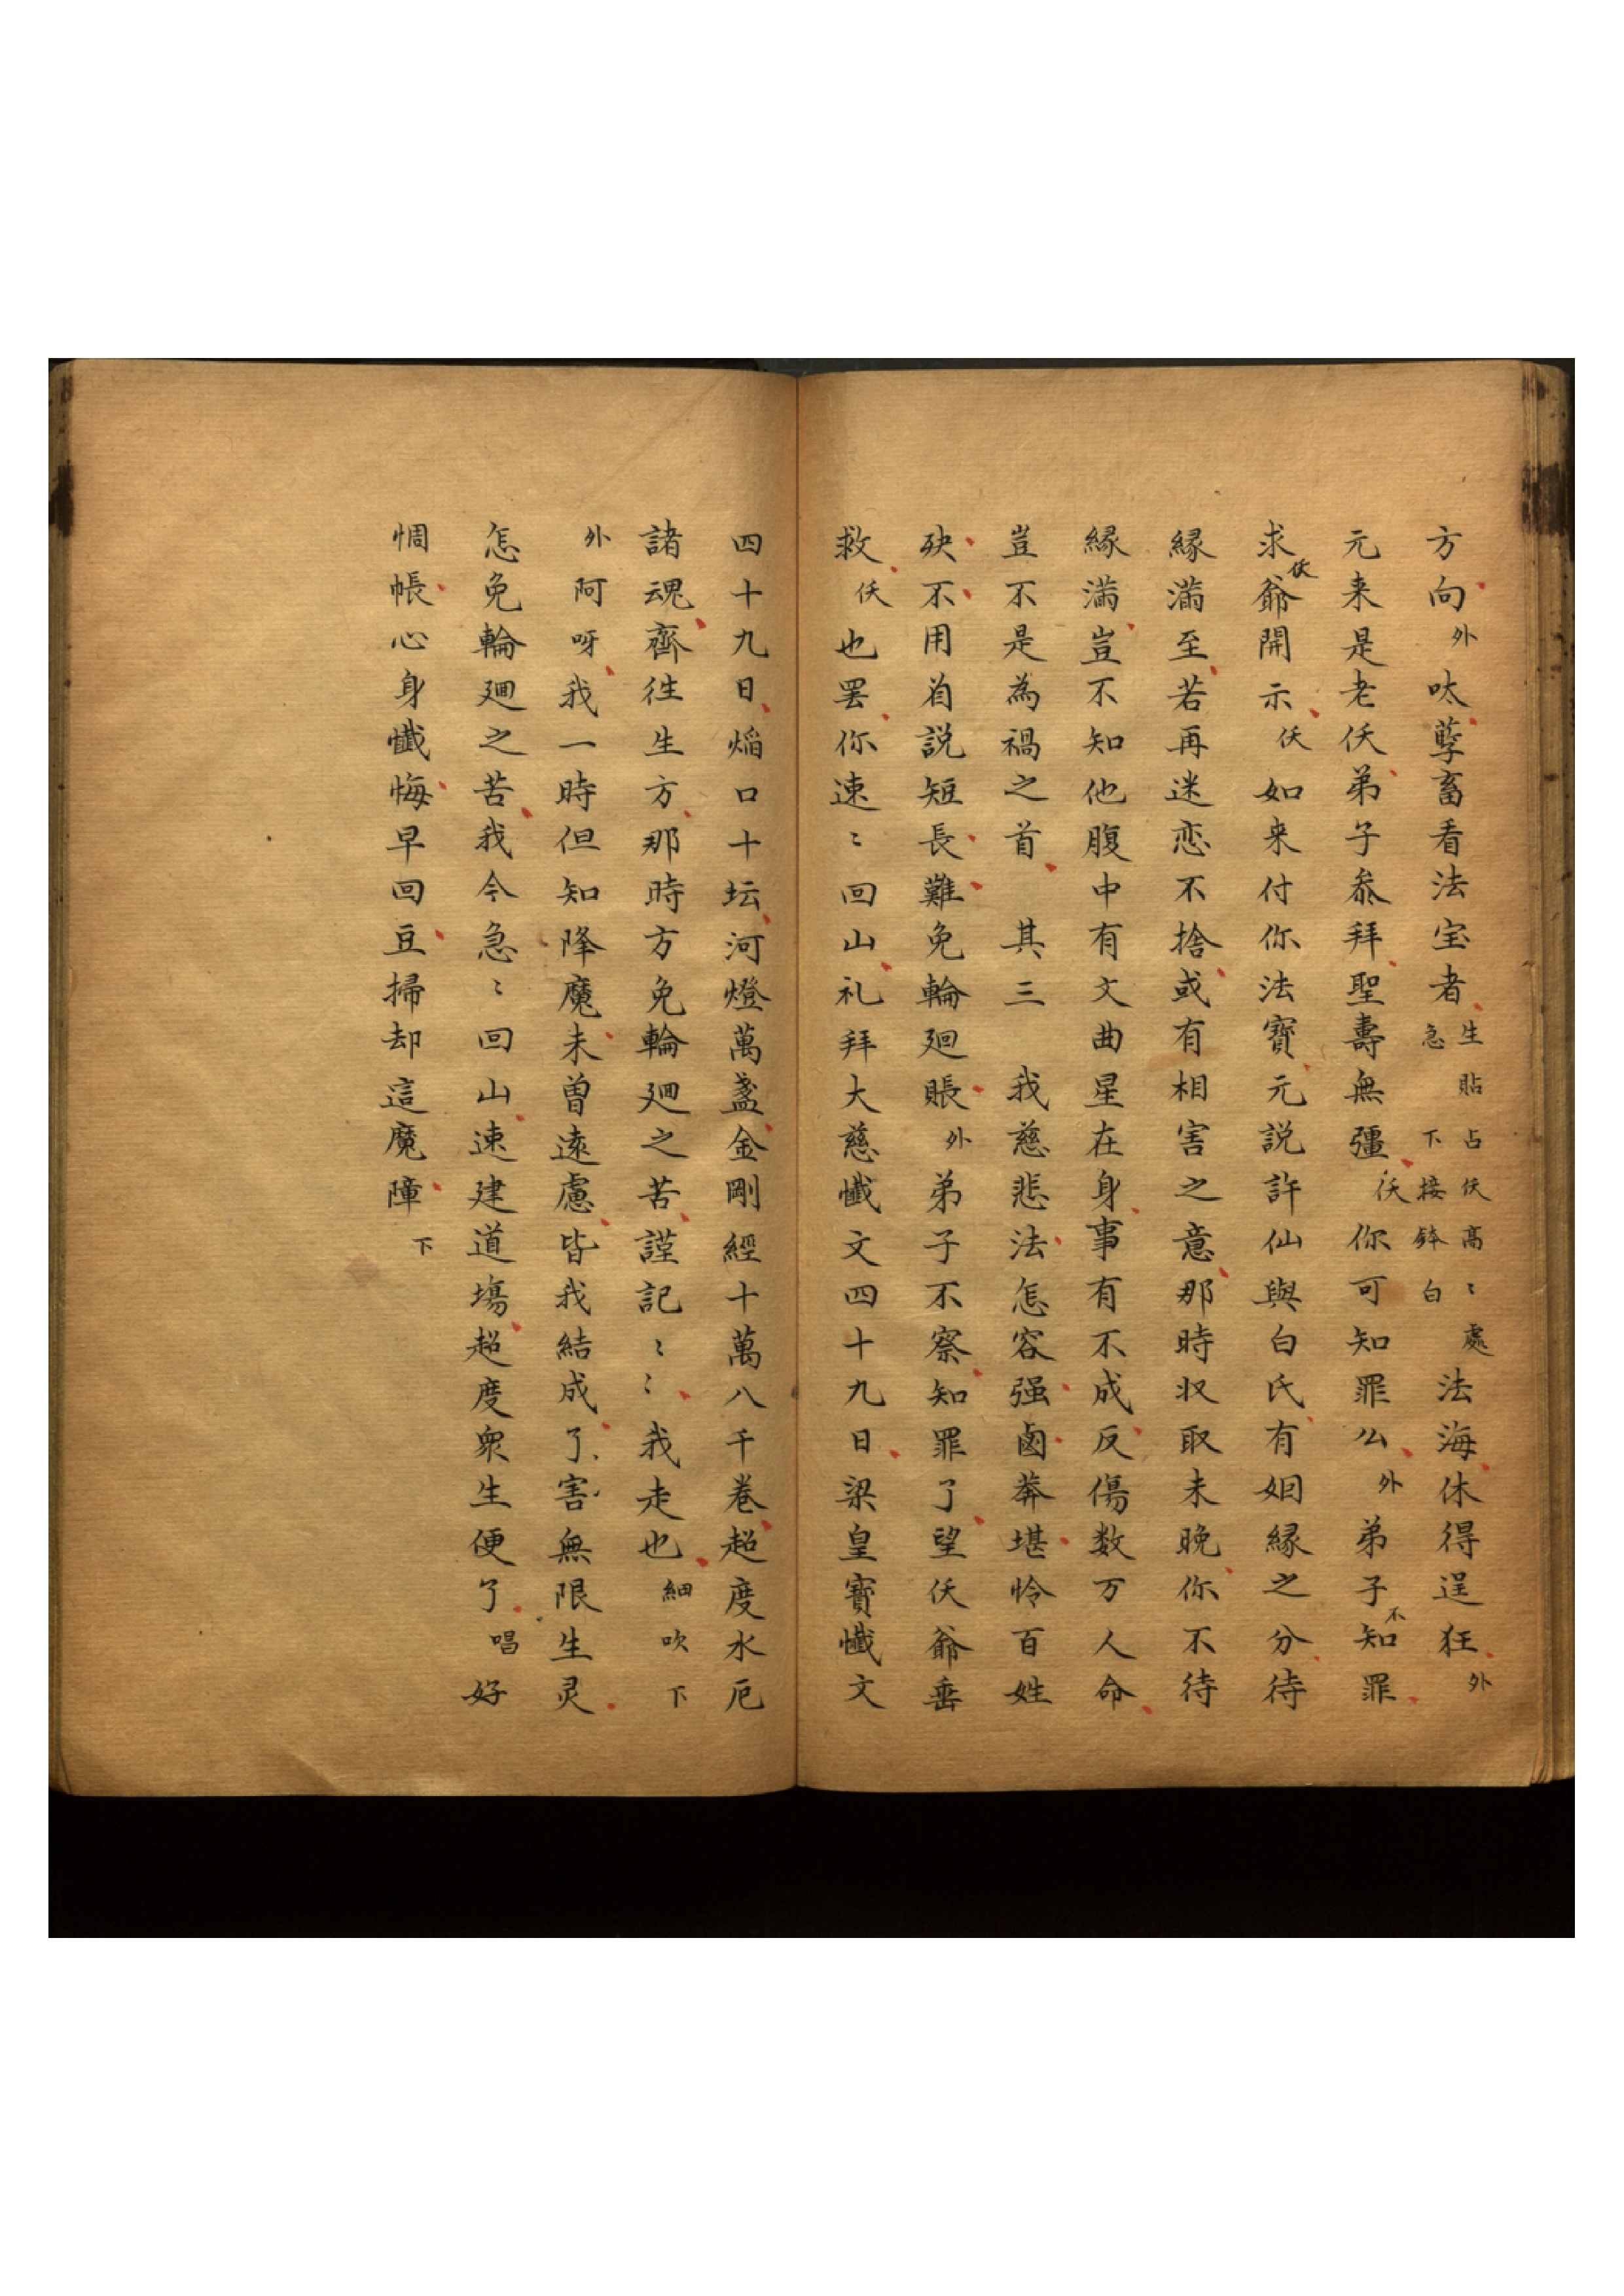 方向外呔孽畜看法宝者生貼占仸高〻處急下接鉢白法海休得逞狂外
元来是老仸弟子叅拜聖壽無彊仸你可知罪公外弟子不知罪
求仸爺開示仸如来付你法寶元説許仙與白氏有姻縁之分待
縁滿至若再迷恋不捨或有相害之意那時収取未晚你不待
縁滿豈不知他腹中有文曲星在身事有不成反傷数万人命
豈不是為禍之首　其三　我慈悲法怎容强鹵莽堪怜百姓
殃不用首説短長難免輪廻賬外弟子不察知罪了望仸爺垂
救仸也罢你速〻回山礼拜大慈懺文四十九日梁皇寳懺文
四十九日焔口十坛河燈萬盞金剛經十萬八千卷超度水厄
諸魂齊徃生方那時方免輪廻之苦謹記〻〻我走也細吹下
外阿呀我一時但知降魔未曾遠慮皆我結成了害無限生灵
怎免輪廻之苦我今急〻回山速建道塲超度衆生便了唱好
惆悵心身懺悔早回豆掃却這魔障下